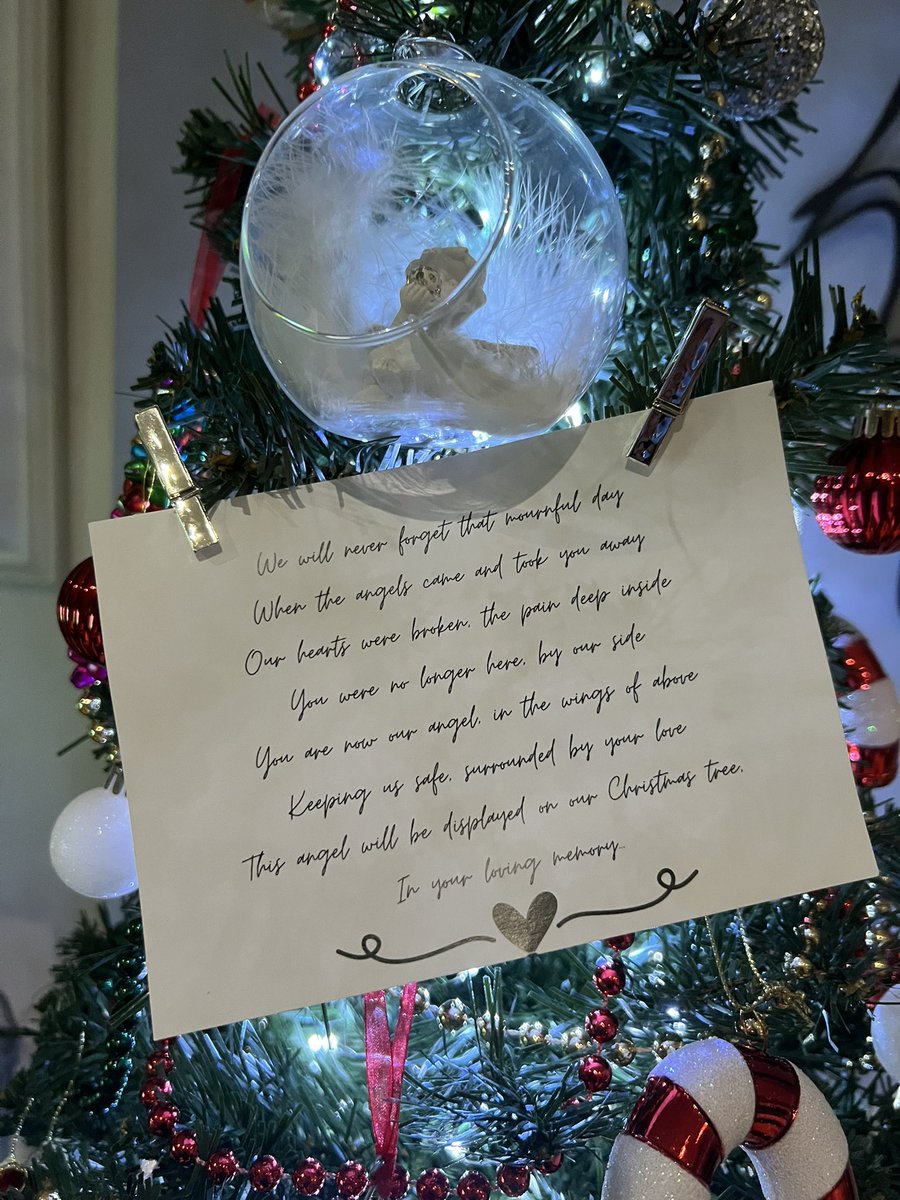 We will never forget that mournful day
When the angels came and took you away
Our hearts were broken, the pain deep inside
You were no longer here, by our side
You are now our angel, in the wings of above
Keeping us safe, surrounded by your love
This angel will be displayed on our Christmas tree,
In your loving memory...